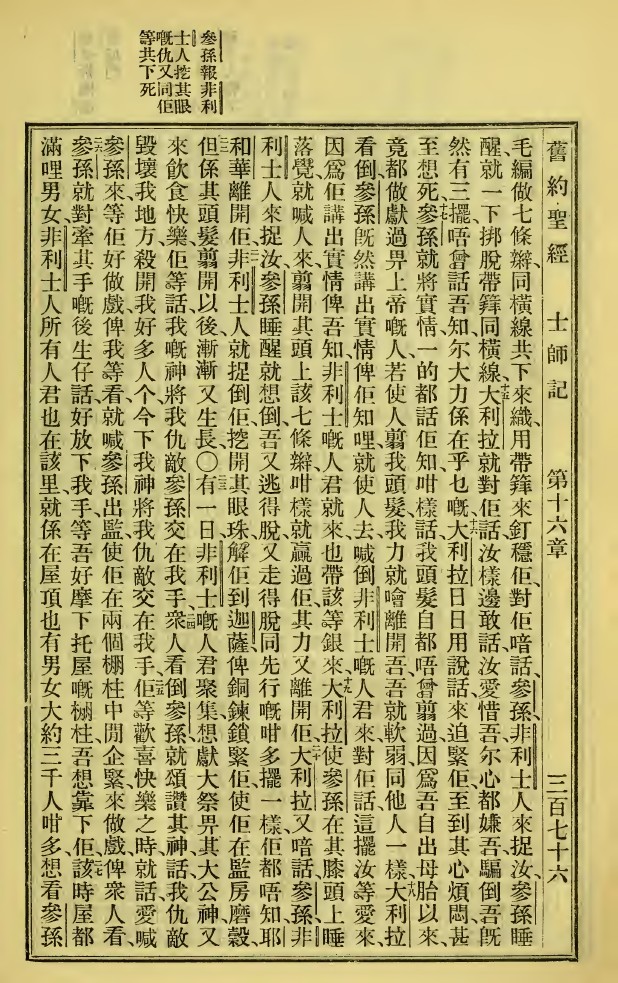 參孫報非利
士人挖其眼
嘅仇又同佢
等共下死
舊約聖經 士師記 第十六章 三百七十六
毛編做七條辮、同橫線共下來織、用帶箨來釘穩佢、對佢喑話、參孫、非利士人來捉汝、參孫睡
醒、就一下挷脫帶箨同橫線、十五大利拉就對佢話、汝樣邊敢話汝愛惜吾、尔心都嫌吾、騙倒吾既
然有三擺、唔曾話吾知尔大力係在乎乜嘅、十六大利拉日日用說話來迫緊佢、至到其心煩悶、甚
至想死、十七參孫就將實情、一的都話佢知、咁樣話、我頭髮自都唔曾翦過、因爲吾自出母胎以來、
竟都做獻過畀上帝嘅人、若使人翦我頭髮、我力就噲離開吾、吾就軟弱同他人一樣、十八大利拉
看倒參孫既然講出實情俾佢知哩、就使人去喊倒非利士嘅人君來、對佢話、這擺汝等愛來、
因爲佢講出實情俾吾知、非利士嘅人君就來、也帶該等銀來、十九大利拉使參孫在其膝頭上睡
落覺、就喊人來、翦開其頭上該七條辮、咁樣就贏過佢、其力又離開佢、二十大利拉又喑話、參孫、非
利士人來捉汝、參孫睡醒就想倒、吾又逃得脫、又走得脫、同先行嘅咁多擺一樣、佢都唔知耶
和華離開佢、二一非利士人就捉倒佢、挖開其眼珠、解佢到迦薩、俾銅鍊鎖緊佢、使佢在監房磨穀、
但係其頭髮翦開以後、漸漸又生長、○二三有一日非利士嘅人君聚集、想獻大祭畀其大公神、又
來飲食快樂、佢等話、我嘅神將我仇敵參孫交在我手、二四衆人看倒參孫、就頌讚其神話、我仇敵
毀壞我地方、殺開我好多人、个今下我神將我仇敵交在我手、二五佢等歡喜快樂之時、就話、愛喊
參孫來、等佢好做戲俾我等看、就喊參孫出監、使佢在兩個棚柱中閒企緊、來做戲俾衆人看、
二六參孫就對牽其手嘅後生仔話、好放下我手、等吾好摩下托屋嘅棚柱、吾想靠下佢、二七該時屋都
滿哩男女、非利士人所有人君也在該里、就係在屋頂也有男女大約三千人咁多、想看參孫